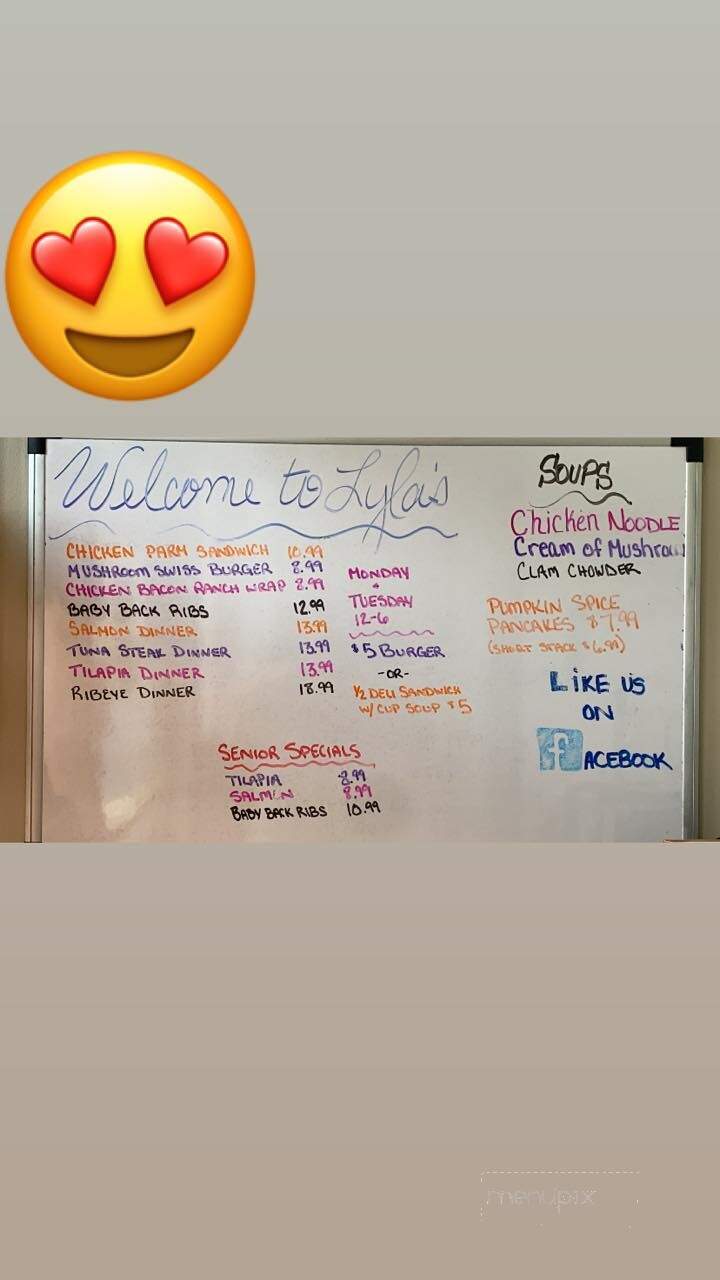 Welcome to Lyla's
CHICKEN PARM SANDWICH 10.99
MUSHROOM SWISS BURGER 8.99
CHICKEN BACON RANCH WRAP 8.99
BABY BACK RIBS 12.99
SALMON DINNER 13.99
TUNA STEAK DINNER 13.99
TILAPIA DINNER 13.99
RIBEYE DINNER 18.99
MONDAY
+
TUESDAY
12-6
$5 BURGER
-OR-
1/2 DELI SANDWICH
W/CUP SOUP $5
SOUPS
Chicken NOODLE
Cream of Mushroom
CLAM CHOWDER
PUMPKIN SPICE
PANCAKES $7.99
(SHORT STACK $6.99)
LiKE US
ON
fACEBOOK
SENIOR SPECIALS
TILAPIA 8.99
SALMON 8.99
BABY BACK RIBS 10.99
menupix